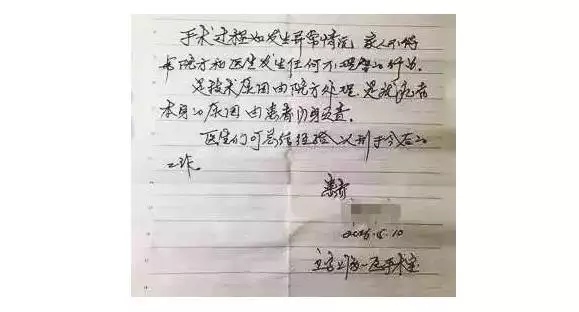 手术过程如发生异常情况 家人不得
与院方和医生发生任何不理智的行为.
是技术原因由院方处理,是我患者
本身的原因由患者自身负责.
医生们可总结经验以利于今后的
工作.
患者
手术室